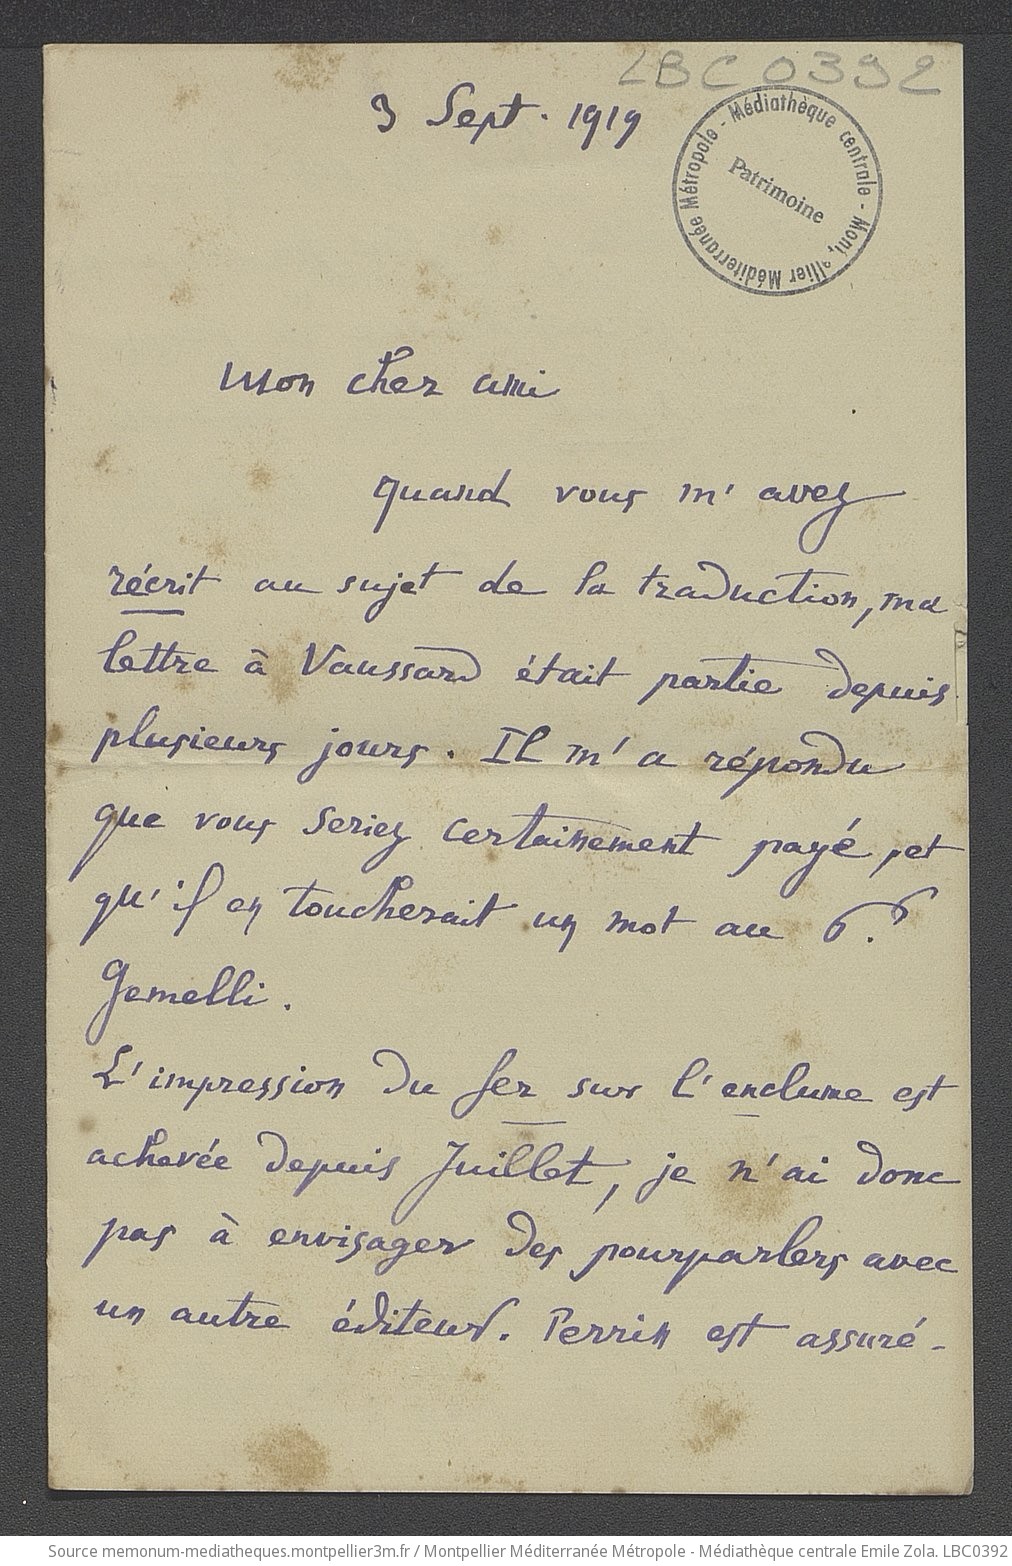 LBC0392
3 Sept. 1919
Médiathèque centrale - Montpellier Méditerranée Métropole -
Patrimoine
Mon cher ami
quand vous m'avez
récrit au sujet de la traduction, ma
lettre à Vaussard était partie depuis
plusieurs jours. Il m'a répondu
que vous seriez certainement payé, et
qu'il en toucherait un mot au P.
Gemelli.
L'impression du fer sur l'enclume est
achevée depuis Juillet, je n'ai donc
pas à envisager des pourparlers avec
un autre éditeur. Perrin est assuré-
Source memonum-mediatheques.montpellier3m.fr / Montpellier Méditerranée Métropole - Médiathèque centrale Emile Zola. LBC0392